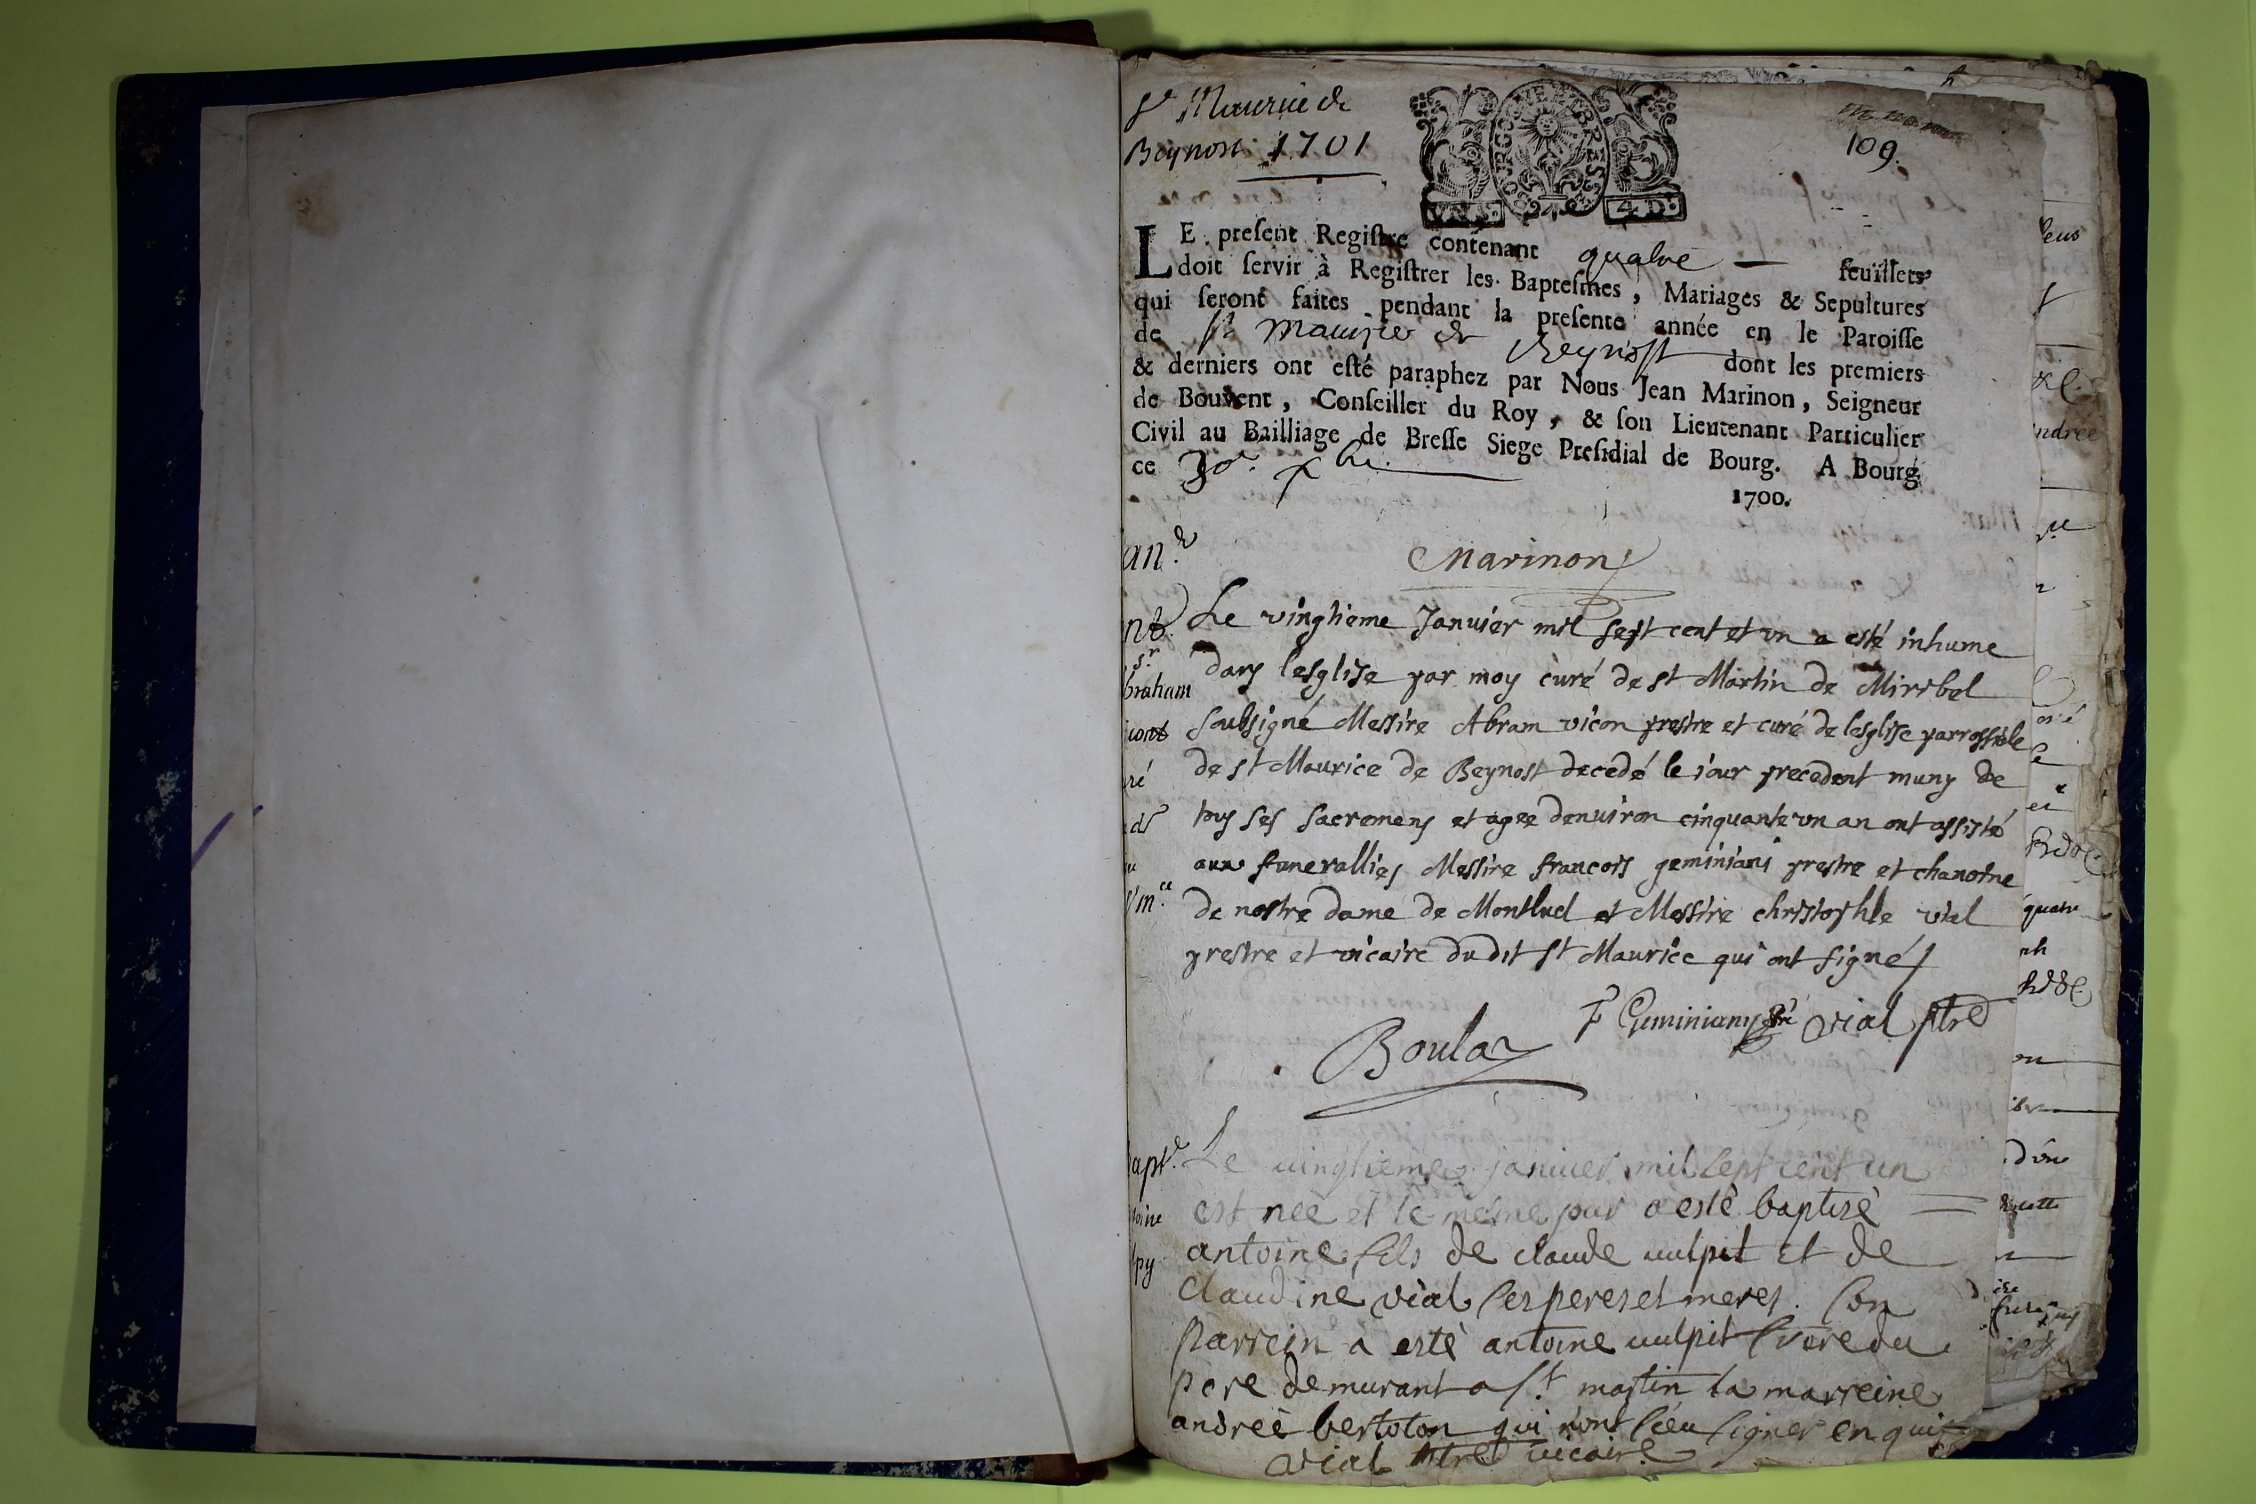 St Maurice de
Beynost 1701
109.
LE present Registre contenant quatre feuillets
doit servir à Registrer les Baptesmes, Mariages & Sepultures
qui seront faites pendant la presente année en le Paroisse
de St Maurice de Beynost dont les premiers
& derniers ont esté paraphez par Nous Jean Marinon, Seigneur
de Bouvent, Conseiller du Roy, & son Lieutenant Particulier
Civil au Bailliage de Bresse Siege Presidial de Bourg. A Bourg
ce 30e. xbre.
1700.
Marinon
Le vinghieme Janvier mil sept cent et vn a esté inhume
dans lesglise par moy curé de st Martin de Miribel
soubsigné Messire Abram vicon prestre et curé de lesglise parrossiale
de st Maurice de Beynost decedé le iour precedent muny de
tous ses sacremens et agee denuiron cinquante vn an ont assisté
aux funerallies Messire francois geminiani prestre et chanoine
de nostre dame de Montluel et Messire christophle vial
prestre et vicaire dudit st Maurice qui ont signé
Boulaz
F Geminiany vial ptre
Le uinghieme januier mil sept cent un
est neé et le mesme jour a esté baptisé
antoine fils de claude uulpil et de
claudine vial ses peres et meres. son
parrein a esté antoine uulpil frere du
pere demurant a st. martin la marreine
andreé bertolon qui n'ont sceu signer enquis
vial ptre uicaire